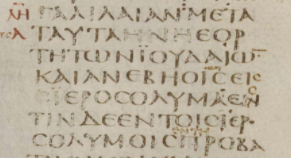 ΛΗ ΓΑΛΙΛΑΙΑΝ ΜΕΤΑ
Α ΤΑΥΤΑ ΗΝ Η ΕΟΡ
ΤΗ ΤΩΝ ΪΟΥΔΑΙΩ̅
ΚΑΙ ΑΝΕΒΗ Ο ΙϹ̅ ΕΙϹ
ΪΕΡΟϹΟΛΥΜΑ ΕϹ
ΤΙΝ ΔΕ ΕΝ ΤΟΙϹ ΪΕΡΟ
ϹΟΛΥΜΟΙϹ ΠΡΟΒΑ